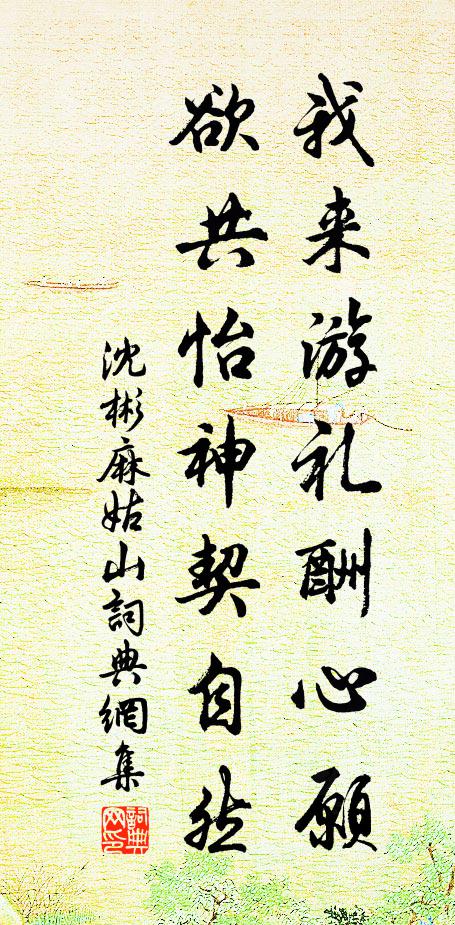 我来游礼酬心愿
欲共怡神契自然
沈彬麻姑山詞典網集
詞典網印